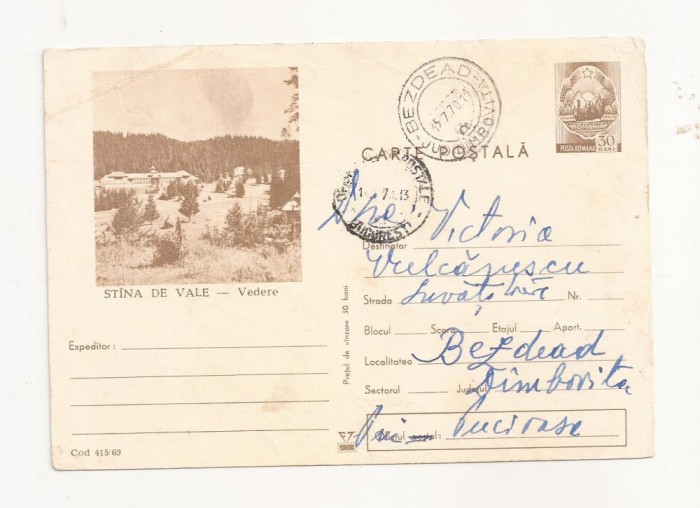 BEZDEAD
JUD. DÎMBOVIȚA
15.7.70
CARTE POȘTALĂ
POSTA ROMANA 30 BANI
BUCUREȘTI
STÎNA DE VALE — Vedere
Expeditor:
Cod 415/69
Prețul de vînzare 30 bani
Destinatar Victoria
Vulcănescu
Strada Nr.
Blocul Scara Etajul Apart.
Localitatea Bezdead
Sectorul Județul Dîmbovița
Oficiul poștal: Pucioasa